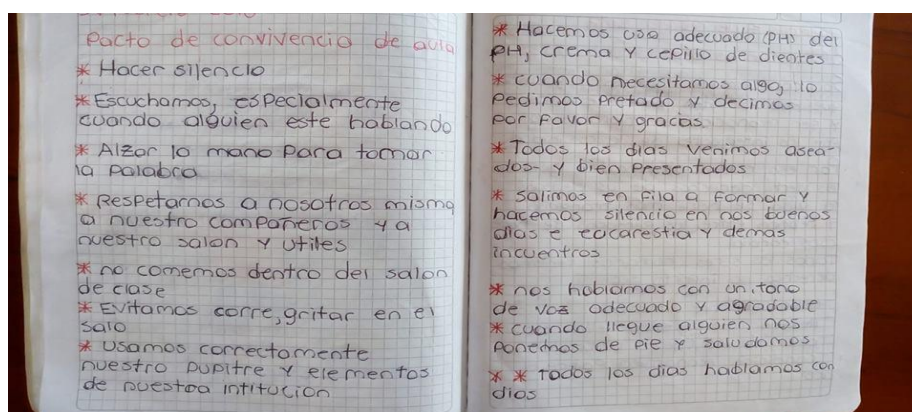 Pacto de convivencia de aula
* Hacer silencio
* Escuchamos, especialmente
cuando alguien este hablando
* Alzar la mano para tomar
la palabra
* Respetarnos a nosotros misma
a nuestro compañeros y a
nuestro salon y utiles
* no comemos dentro del salon
de clase
* Evitamos corre, gritar en el
salo
* usamos correctamente
nuestro pupitre y elementos
de nuestra intitucion
* Hacemos uso adecuado (PH) del
PH, crema y cepillo de dientes
* cuando necesitamos algo, lo
pedimos pretado y decimos
por favor y gracias
* Todos los dias venimos asea-
dos- y bien presentados
* salimos en fila a formar y
hacemos silencio en nos buenos
dias e eucarestia y demas
incuentros
* nos hablamos con un tono
de voz adecuado y agradable
* cuando llegue alguien nos
ponemos de pie y saludamos
* * Todos los dias hablamos con
dios